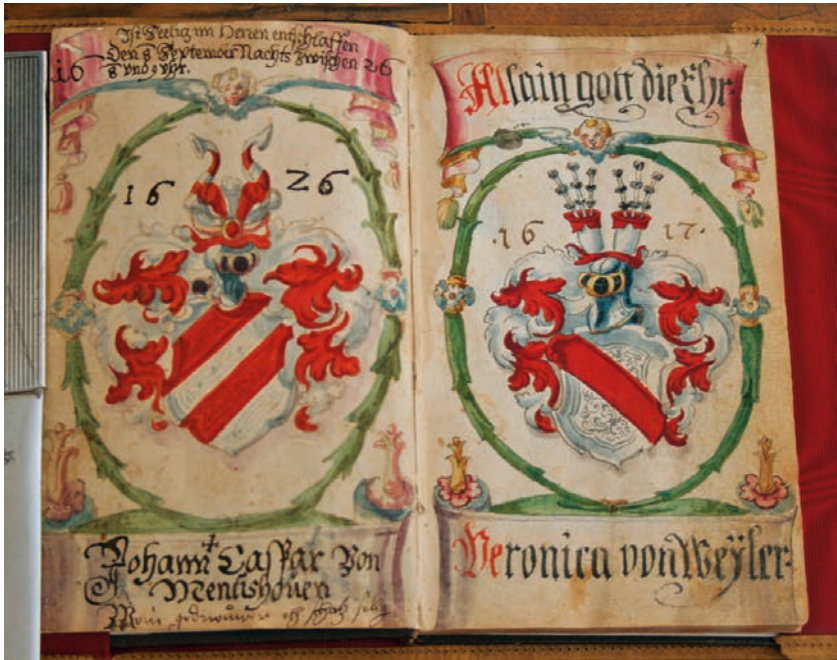 Ist Seelig im Herren entschlaffen
Den 8 Septemër Nachts zwischen
16 26
8 vnd 9 vhr.
16 26
Johann Caspar Von
Mentishoven
Mein
Allain gott die Ehr
16 17
Veronica von Weÿler